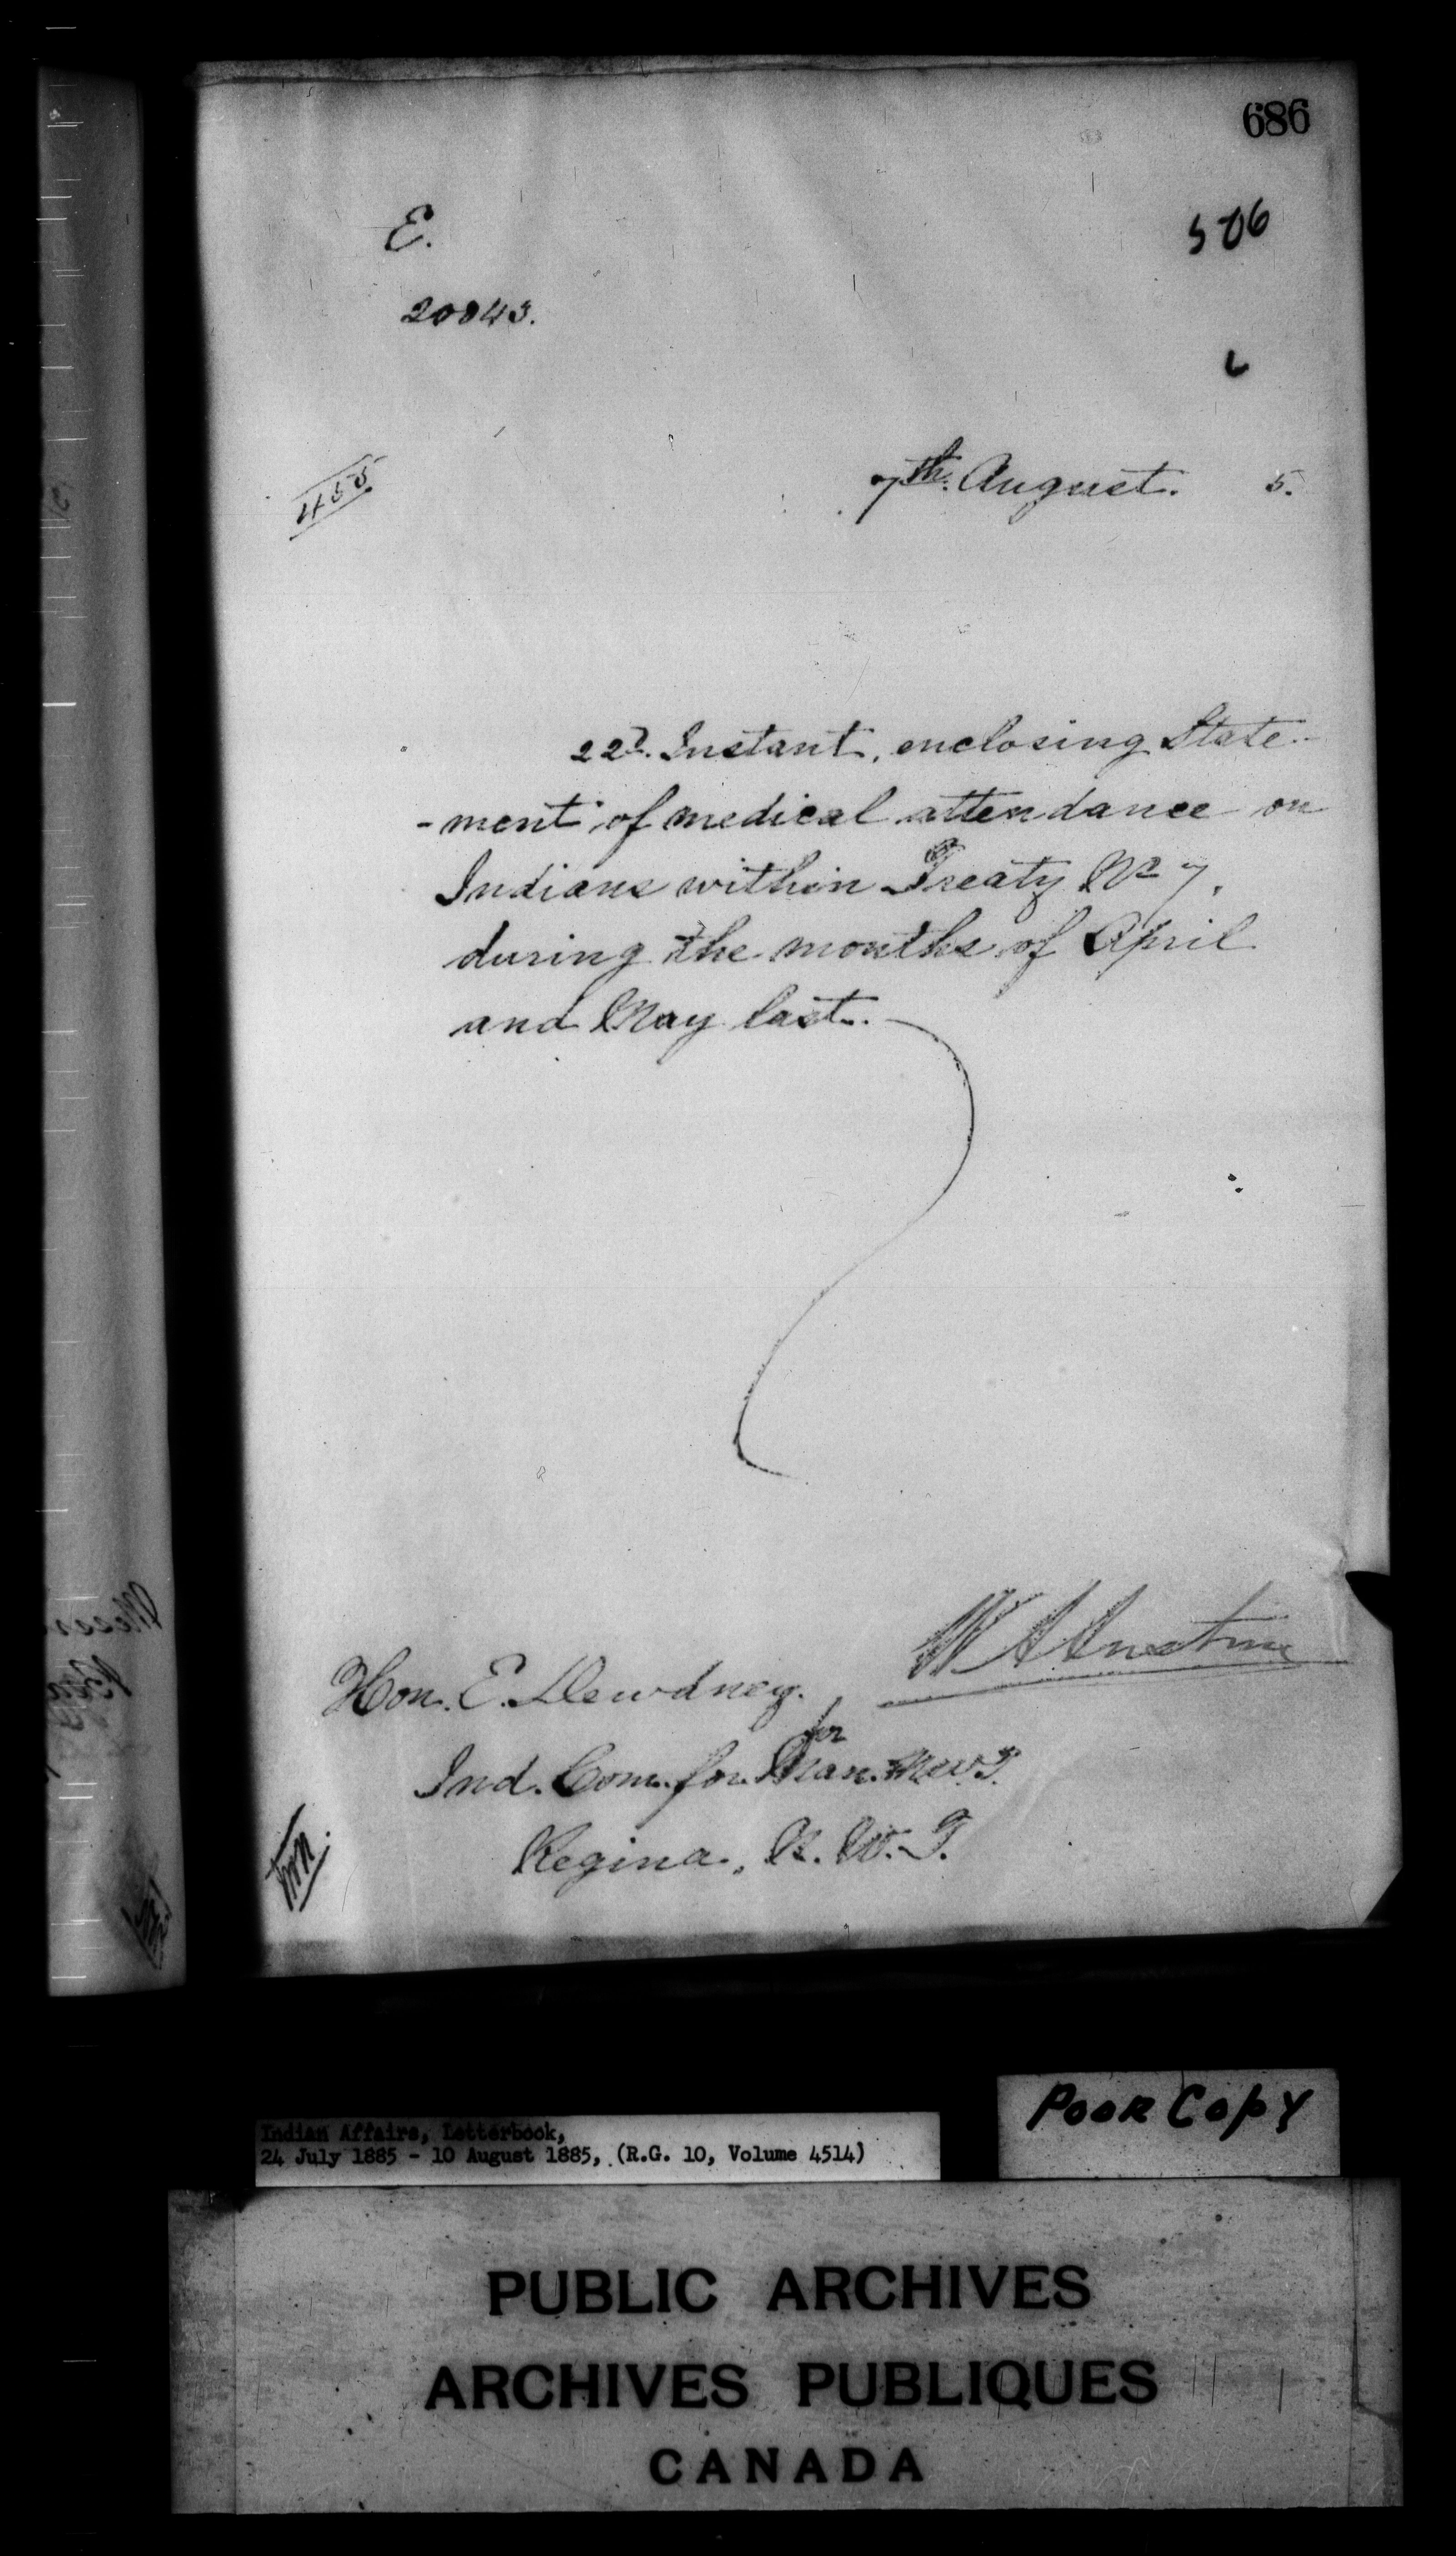 686
E.
506
20043.
455
7th. August. 5.
22d. Instant, enclosing State-
-ment of medical attendance on
Indians within Treaty No 7,
during the months of April
and May last.
Hon. E. Dewdney.
for
Ind. Com. for Man. N.W.T.
Regina, N. W. T.
POOR COPY
Indian Affairs, Letterbook,
24 July 1885 - 10 August 1885, (R.G. 10, Volume 4514)
PUBLIC ARCHIVES
ARCHIVES PUBLIQUES
CANADA